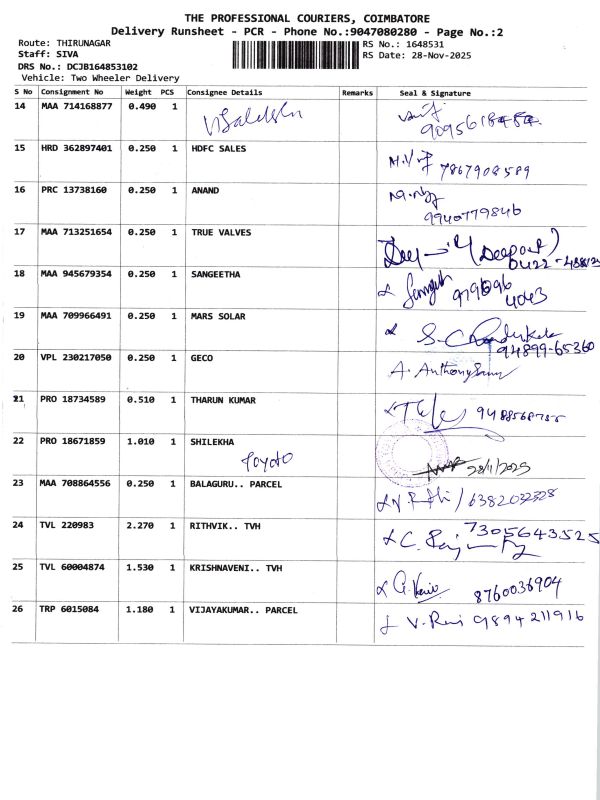 THE PROFESSIONAL COURIERS, COIMBATORE
Delivery Runsheet - PCR - Phone No.:9047080280 - Page No.:2
Route: THIRUNAGAR
RS No.: 1648531
Staff: SIVA
RS Date: 28-Nov-2025
DRS No.: DCJB164853102
Vehicle: Two Wheeler Delivery
S No Consignment No Weight PCS Consignee Details Remarks Seal & Signature
14 MAA 714168877 0.490 1
15 HRD 362897401 0.250 1 HDFC SALES
7867908589
16 PRC 13738160 0.250 1 ANAND
9940779846
17 MAA 713251654 0.250 1 TRUE VALVES
18 MAA 945679354 0.250 1 SANGEETHA
4043
19 MAA 709966491 0.250 1 MARS SOLAR
94899-65360
20 VPL 230217050 0.250 1 GECO
A. Anthonysamy
21 PRO 18734589 0.510 1 THARUN KUMAR
22 PRO 18671859 1.010 1 SHILEKHA
Toyoto
28/11/2025
23 MAA 708864556 0.250 1 BALAGURU.. PARCEL
6382032328
24 TVL 220983 2.270 1 RITHVIK.. TVH
7305643525
25 TVL 60004874 1.530 1 KRISHNAVENI.. TVH
8760036904
26 TRP 6015084 1.180 1 VIJAYAKUMAR.. PARCEL
V. Ravi 9894211916